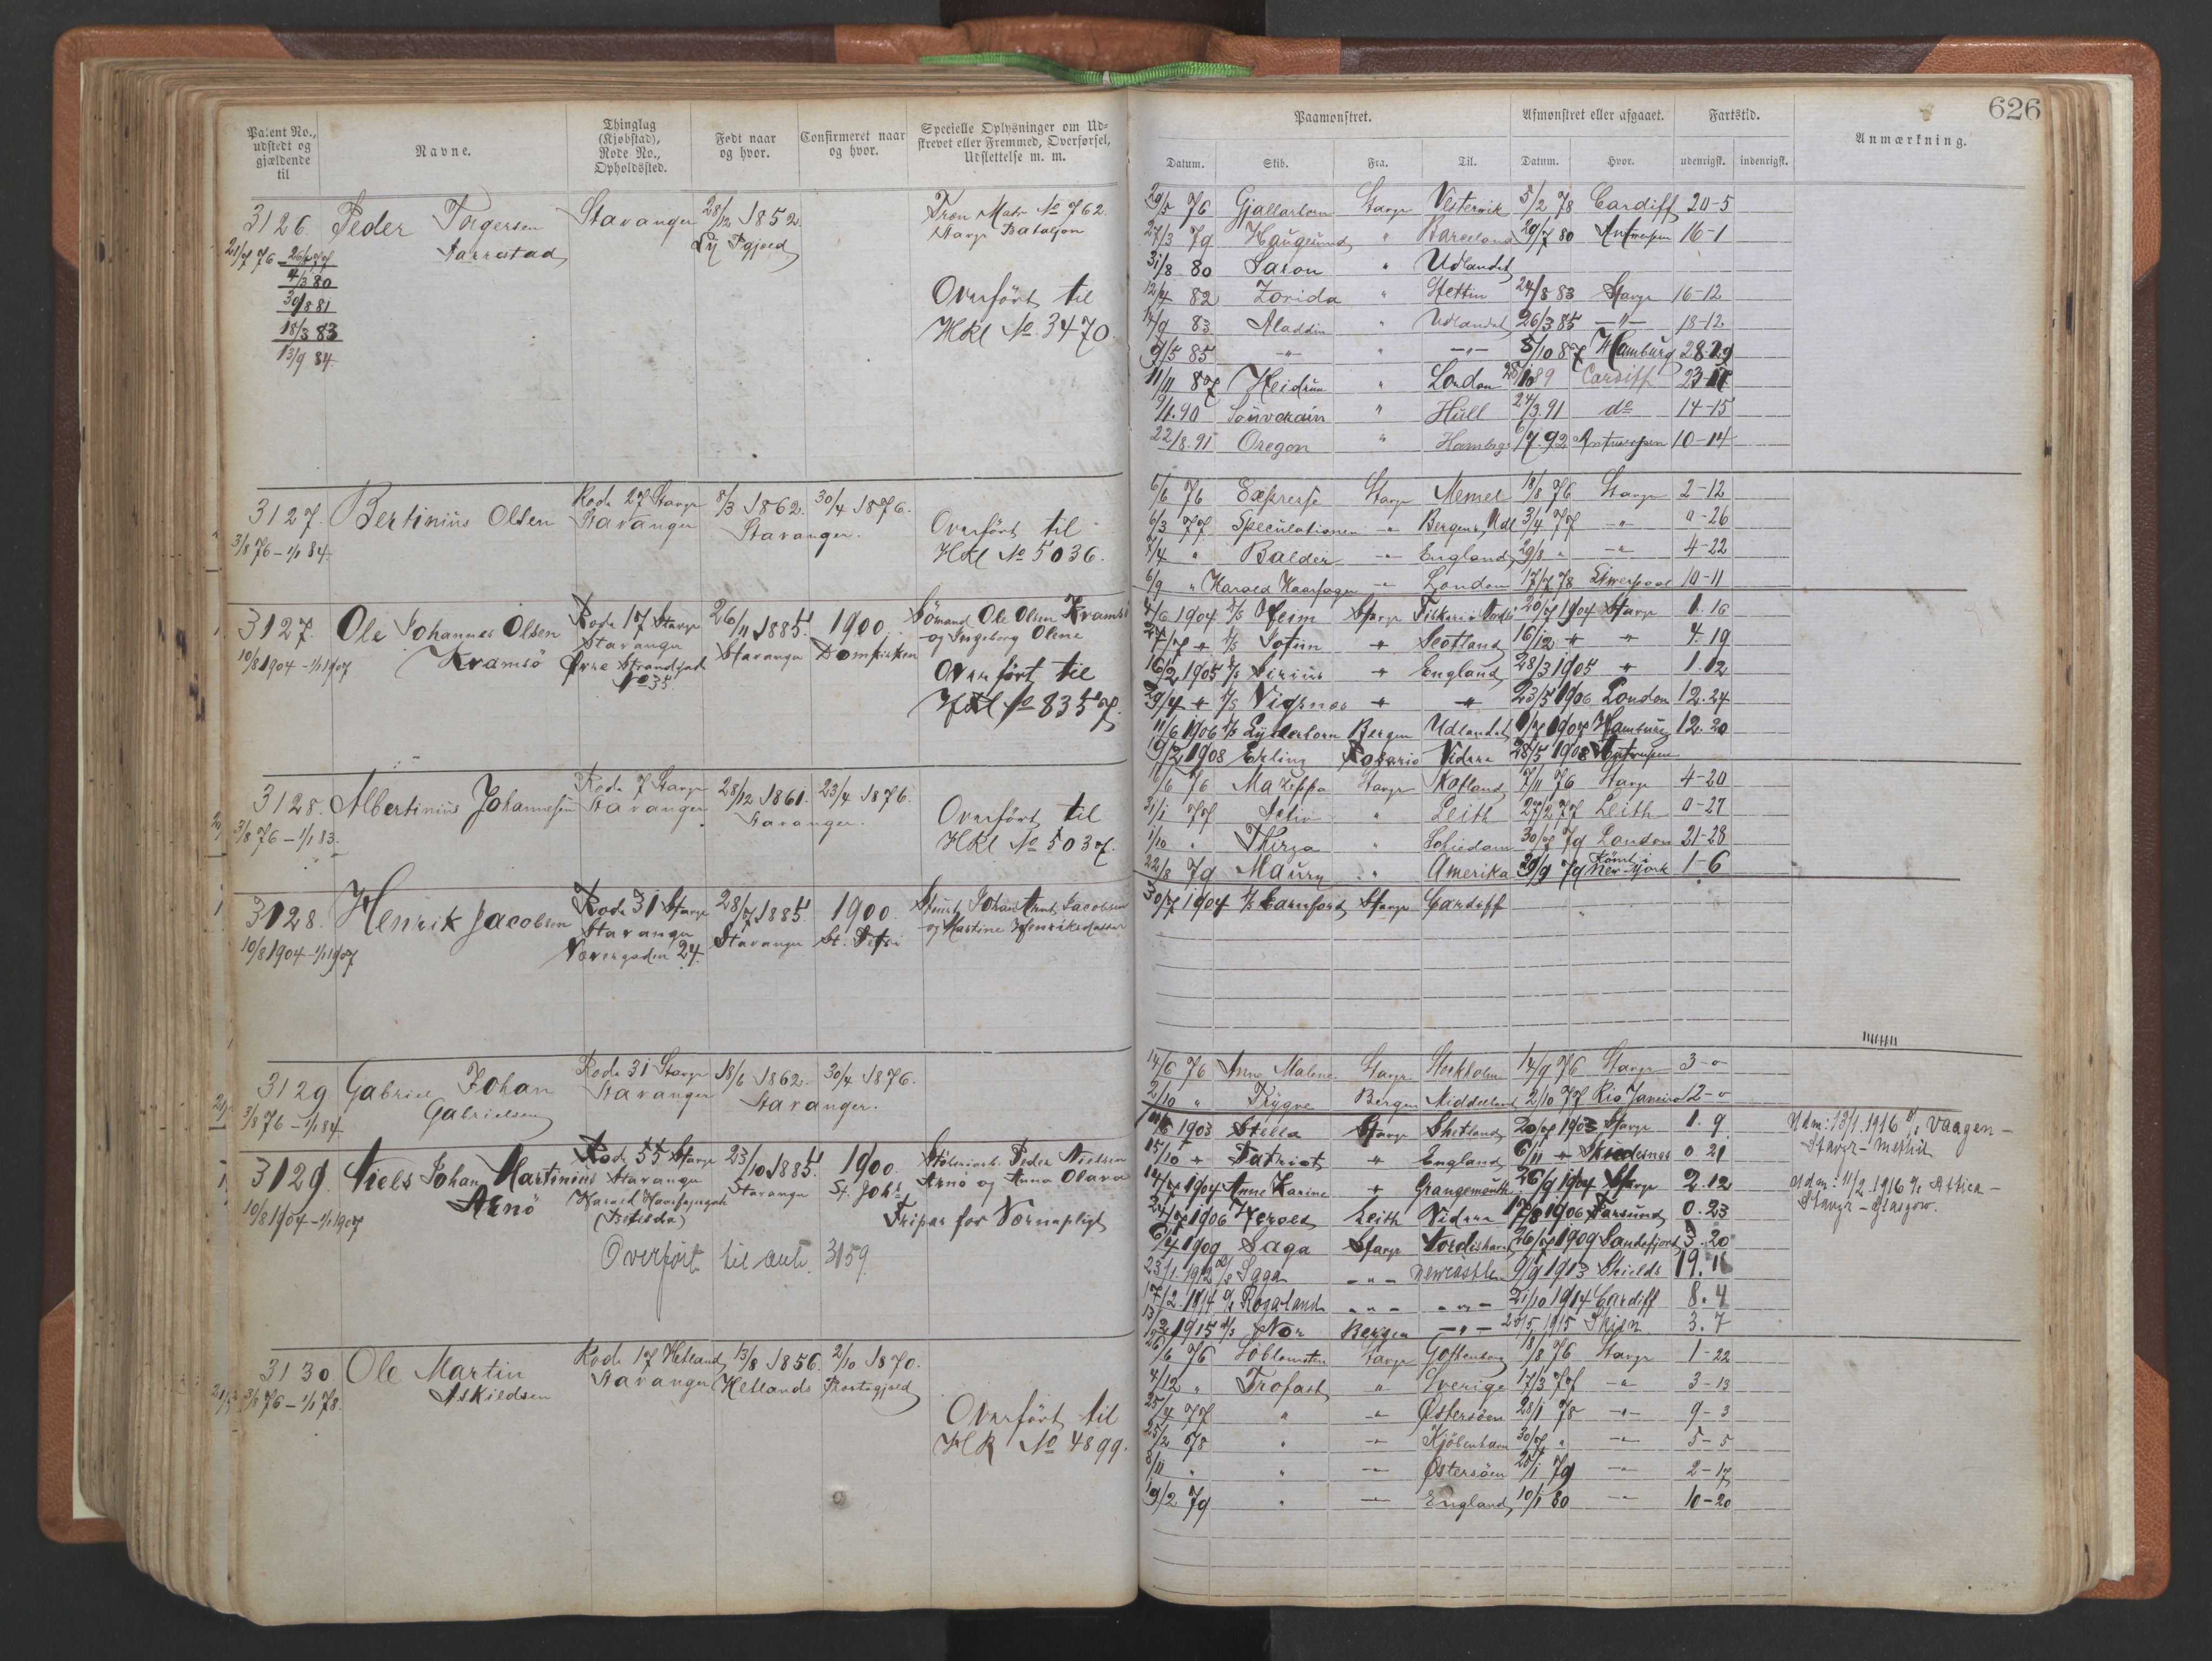 626
Patent No., udstedt og gjældende til
Navne.
Thinglag (Kjøbstad), Rode No., Opholdssted.
Født naar og hvor.
Confirmeret naar og hvor.
Specielle Oplysninger om Udskrevet eller Fremmed, Overførsel, Udslettelse m. m.
Paamønstret.
Afmønstret eller afgaaet.
Fartstid.
Anmærkning.
Datum. Skib. Fra. Til. Datum. Hvor. udenrigsk. indenrigsk.
3126. Peder Torgersen Stavanger 28/12 1852.
Lye Pgjeld
21/7 76 -
4/3 80
30/8 81
18/3 83
13/9 84
Matr No 762.
Stavgr Bataljon
Overført til
Hkl No. 3470.
29/5 76 Gjallarhorn Stavgr Vestervik 5/2 78 Cardiff 20-5
27/3 79 Haugesund " Barcelona 29/7 80 Antwerpen 16-1
31/8 80 Saron " Udlandet
12/4 82 Zorida " Stettin 24/8 83 Stavgr 16-12
14/9 83 Aladdin " Udlandet 26/3 85 -"- 18-12
9/5 85 -"- " -"- 5/10 87 Hamburg 28-29
11/11 87 Heidrun " London Cardiff
90 Souverain " Hull 24/3.91 do 14-15
22/8.91 Oregon " Hambrg 6/7.92 Antwerpen 10-14
3127. Bertinius Olsen Rode 27 Stavgr 8/3 1862. 30/4 1876.
Stavanger Stavanger.
3/8 76 - 1/1 84.
Overført til
Hkl No 5036.
6/6 76 Expresse Stavgr Memel 18/8 76 Stavgr 2-12
6/3 77 Speculationen -"- Bergen, Udl 3/4 77 -"- 0-26
8/4 " Balder -"- England 29/8 " -"- 4-22
6/9 " Harald Haarfager -"- London 17/7 78 Liverpool 10-11
3127. Ole Johannes Olsen Rode 17 Stavgr 26/11 1885. 1900. Sömand Ole Olsen Kramsö
Kramsö Stavanger Stavanger Domkirken og Ingeborg Olene
10/8 1904 - 1/1 1907 Øvre Strandgade
No 35.
Overført til
Hkl No 8357.
4/6 1904 Heim Stavgr 20/7 1904 Stavgr 1. 16
27/7 " Scotland 16/12 " " 4. 19
16/2 1905 Sirius " England 28/3 1905 " 1. 12
29/4 " Vigsnes " " 23/5 1906 London 12. 24
11/6 1906 Lyderhorn Bergen Udlandet 1907 Hamburg 12. 20
19/2 1908 Erling Rosario Videre 28/5 1908 Antwerpen
3128. Albertinius Johannesen Rode 7 Stavgr 28/12 1861. 23/4 1876.
Stavanger Stavanger.
3/8 76 - 1/1 83.
Overført til
Hkl No 5037.
16/6 76 Mazeppa Stavgr Rotland 17/11 76 Stavgr 4-20
31/1 77 Activ " Leith 27/2 77 Leith 0-27
1/10 " Thirza " Schiedam 30/7 79 London 21-28
22/8 79 Maury " Amerika 29/9 79 Rømt i New York 1-6
3128. Henrik Jacobsen Rode 31 Stavgr 28/7 1885. 1900.
Stavanger Stavanger St. Petri og Martine Henriksdatter
10/8 1904 - 1/1 1907 Nævergaden 24.
30/7 1904 Carnford Stavgr Cardiff
3129. Gabriel Johan Rode 31 Stavgr 18/6 1862. 30/4 1876.
Gabrielsen Stavanger Stavanger.
3/8 76 - 1/1 84
14/6 76 Anne Malene Stavgr Stockholm 14/9 76 Stavgr 3-0
2/10 " Trygve Bergen Middelhavet 2/10 77 Rio Janeiro 12-0
3129. Niels Johan Martinius Rode 55 Stavgr 23/10 1885. 1900. Peder Nielsen
Arnö Stavanger Stavanger St. Johs Arnö og Anna Olava
10/8 1904 - 1/1 1907 Harald Haarfagersgade
(Bethesda)
Fripas for Værnepligt
Overført til anti. 3159.
1903 Stella Stavgr Shetland 20/7 1903 Stavgr 1. 9
15/10 " Patriot " England 6/11 " 0. 21
14/7 1904 Anne Karine " Grangemouth 26/9 1904 Stavgr 2. 12
24/7 1906 Herold Leith Videre 17/8 1906 Farsund 0. 23
6/4 1909 Saga Stavgr Nordishavet 26/7 1909 Sandefjord 3. 20
23/1. 1912 Saga -"- Newcastle 9/9 1913 Shields
17/2. 1914 Rogaland -"- -"- 21/10 1914 Cardiff 8. 4
1915 Nor Bergen -"- 1915 Skien 3. 7
Udm: 13/1 1916 Vaagen -
Stavgr - Methil
Udm: 11/2. 1916 Attica -
Stavgr - Glasgow.
3130. Ole Martin Rode 17 Hetland 13/8 1856. 2/10 1870.
Askildsen Stavanger Hetlands Præstegjeld
3/8 76 - 1/1 78.
Overført til
Hk No 4899.
26/6 76 Soblomsten Stavgr Gothenborg 18/8 76 Stavgr 1-22
4/12 " Trofast " Sverige 17/3 77 -"- 3-13
25/4 77 " -"- Østersöen 28/1 78 -"- 9-3
25/2 78 " -"- Kjöbenhavn 30/7 " -"- 5-5
8/11 " " -"- Østersöen 25/1 79 -"- 2-17
19/2 79 " -"- England 10/1 80 -"- 10-20